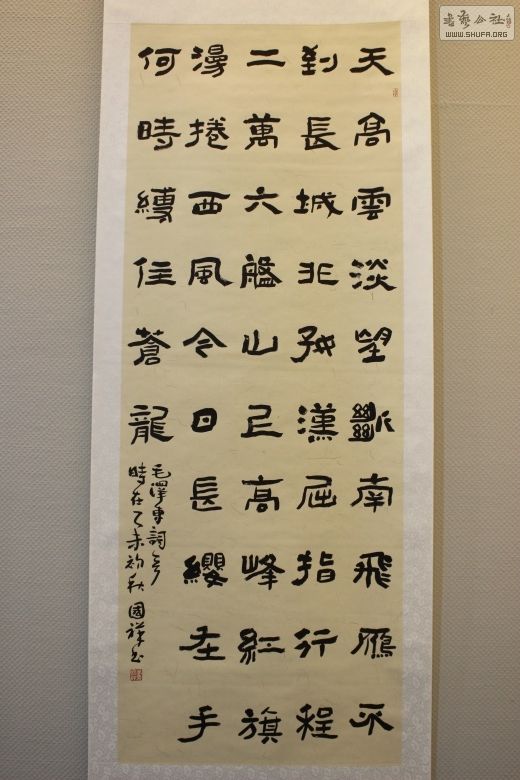 天高雲淡望斷南飛雁不
到長城非好漢屈指行程
二萬六盤山上高峰紅旗
漫捲西風今日長纓在手
何時縛住蒼龍
毛澤東詞
時在乙未初秋國祥书
书艺公社
WWW.SHUFA.ORG